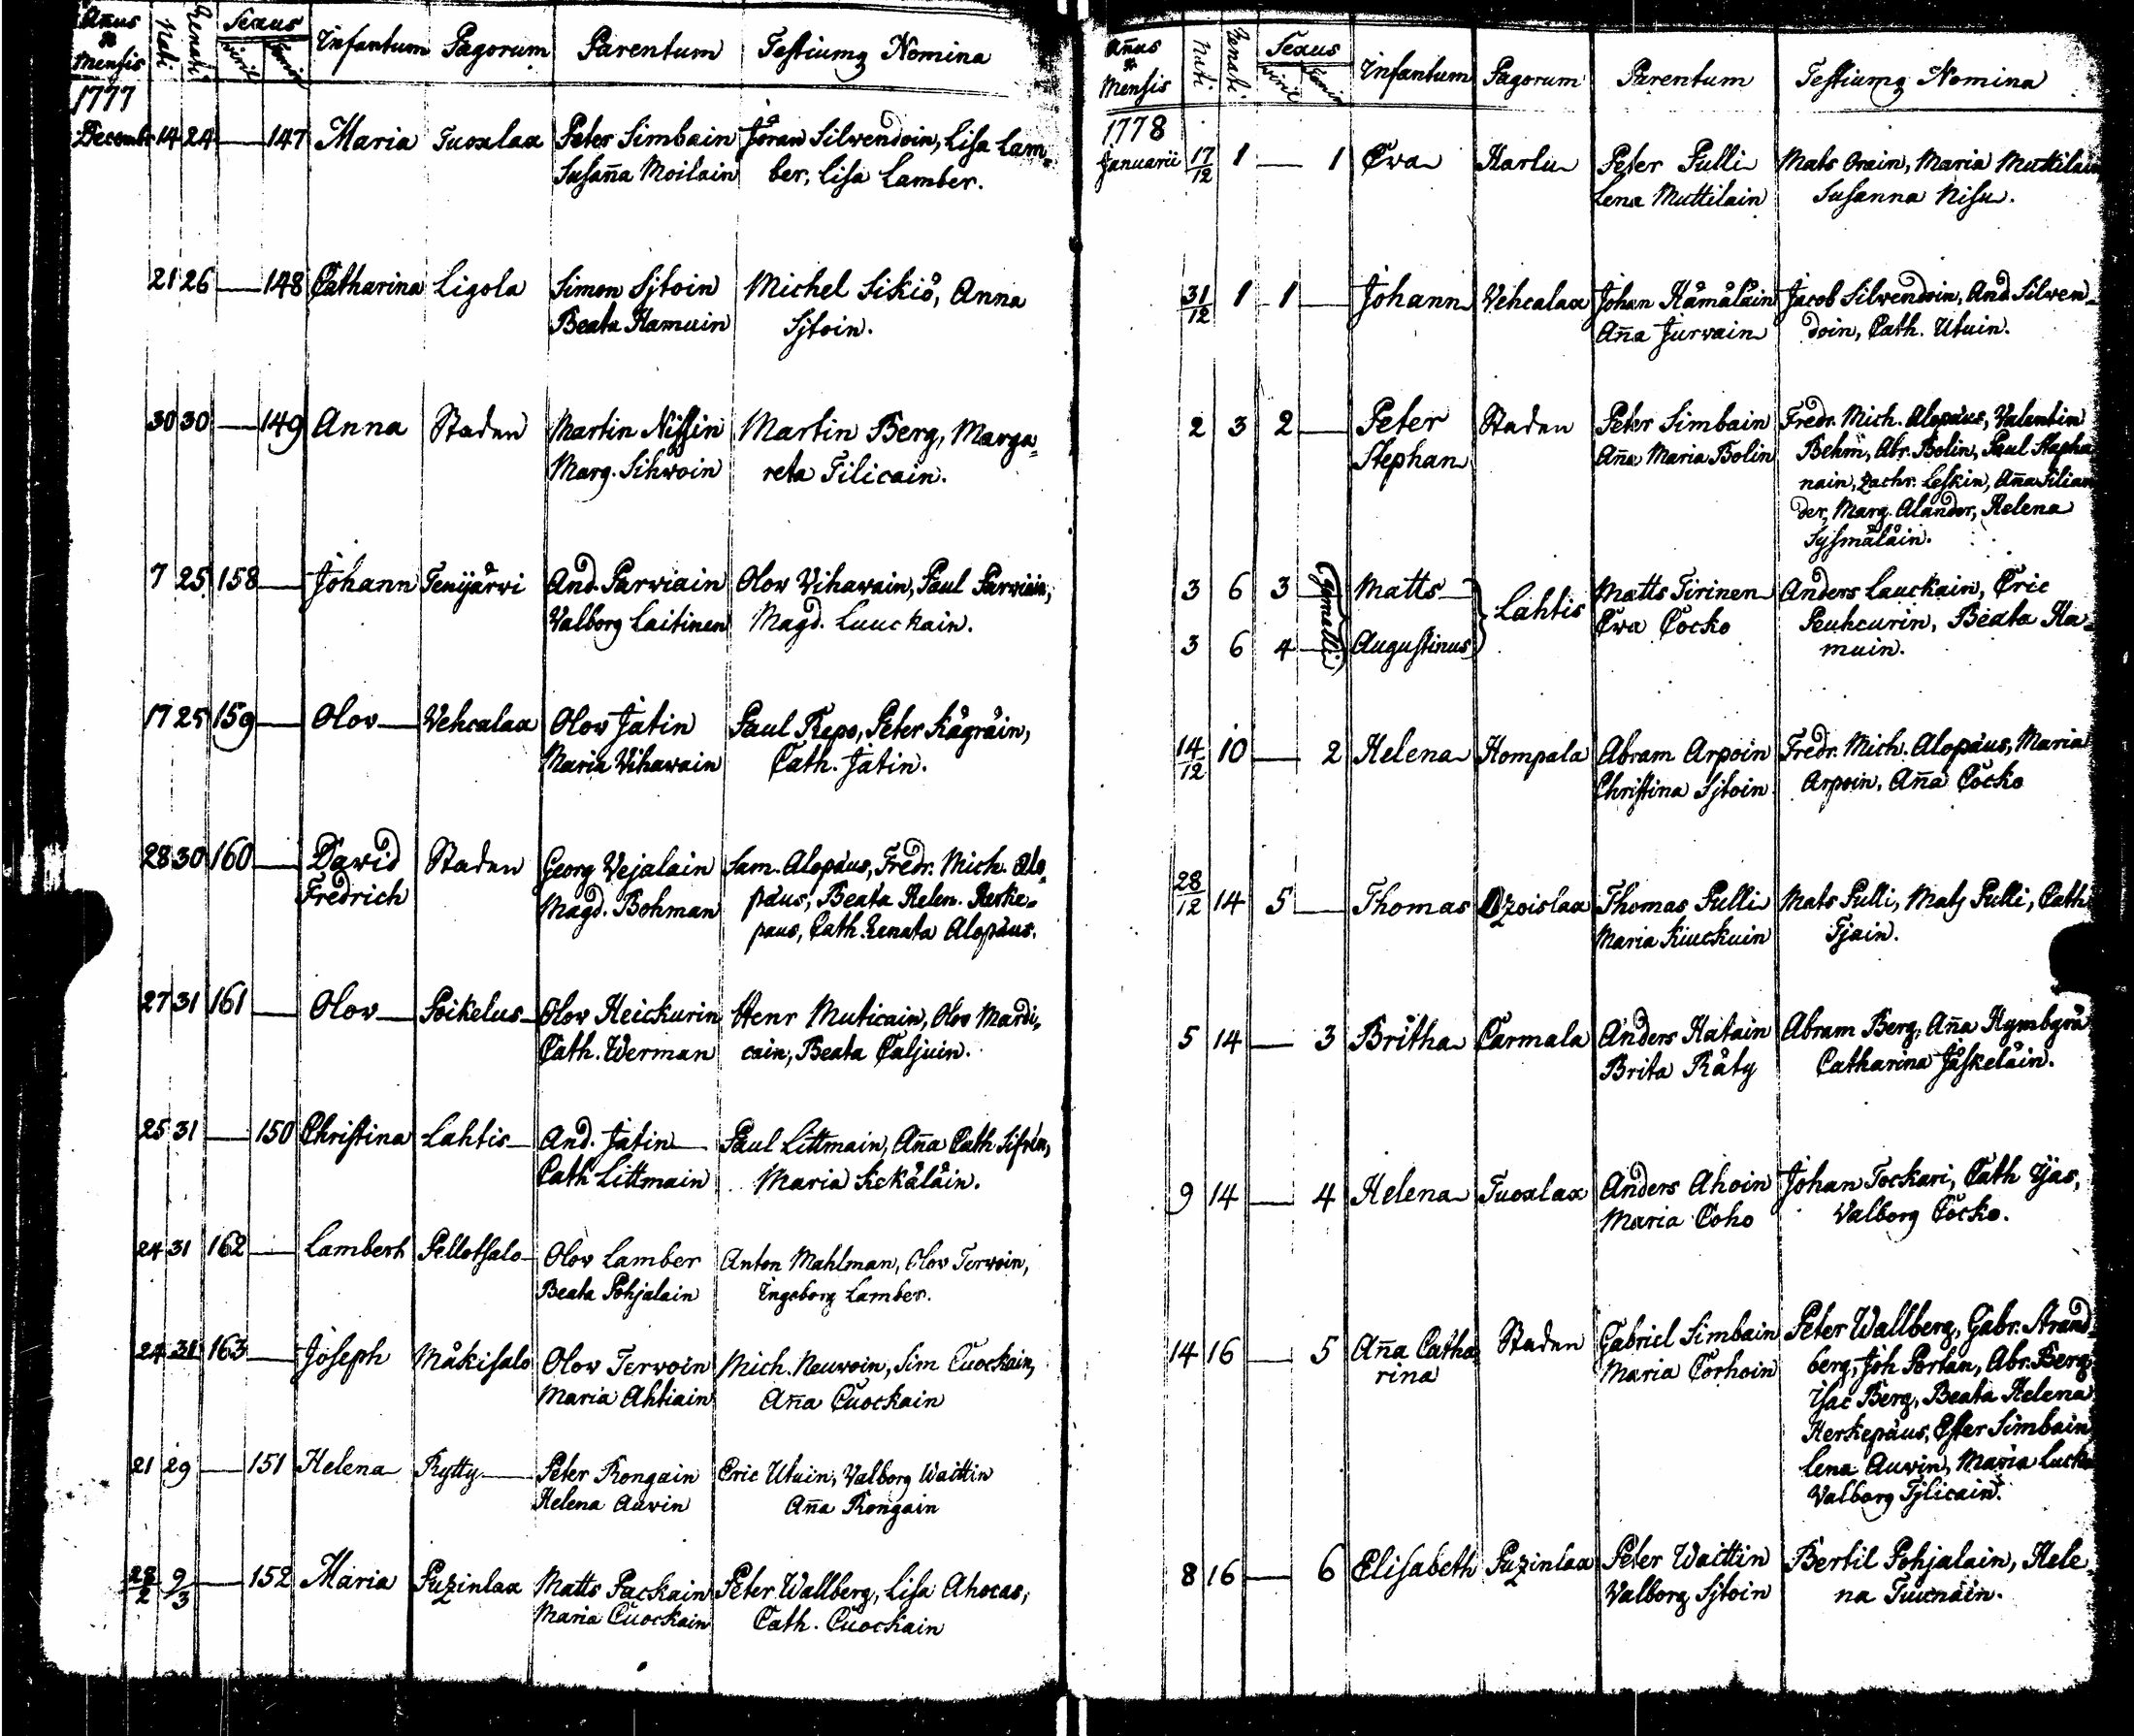 Añus & Mensis Nati Renati Sexus viril femin Infantum Pagorum Parentum Testiumq Nomina
1777
Decembr 14 24 — 147 Maria Tuoxlax Peter Simbain Jöran Silvendoin, Lisa Lam=
Susaña Moilain ber, Lisa Lamber.
21 26 — 148 Catharina Ligola Simon Sjtoin Michel Sikiö, Anna
Beata Hamuin Sjtoin.
30 30 — 149 Anna Staden Martin Nissin Martin Berg, Marga=
Marg. Sihvoin reta Tilicain.
7 25 158 — Johann Tenijärvi And. Parviain Olov Vihavain, Paul Parviain,
Valborg Laitinen Magd. Luuckain.
17 25 159 — Olov Vehcalax Olov Jatin Paul Repo, Peter Kägräin,
Maria Vihavain Cath. Jatin.
28 30 160 — David Staden Georg Vejalain Sam. Alopäus, Fredr. Mich. Alo=
Fredrich Magd. Bohman päus, Beata Helen. Herke=
päus, Cath. Renata Alopäus.
27 31 161 — Olov Poikelus Olov Heickurin Henr Muticain, Olov Mardi=
Cath. Werman cain, Beata Caljuin.
25 31 — 150 Christina Lahtis And. Jatin Paul Littmain, Aña Cath
Cath Littmain Maria Kekäläin.
24 31 162 — Lambert Pellotsalo Olov Lamber Anton Mahlman, Olov Tervoin,
Beata Pohjalain Ingeborg Lamber.
24 31 163 — Joseph Mäkisalo Olov Tervoin Mich. Neuvoin, Sim Cuockain,
Maria Ahtiain Aña Cuockain
21 29 — 151 Helena Rytty Peter Rongain Eric Utuin, Valborg Waittin
Helena Auvin Aña Rongain
28/2 9/3 — 152 Maria Puzinlax Matts Packain Peter Wallberg, Lisa Ahocas,
Maria Cuockain Cath. Cuockain
Añus & Mensis Nati Renati Sexus viril femin Infantum Pagorum Parentum Testiumq Nomina
1778
Januarii 17/12 1 — 1 Eva Harlu Peter Pulli Mats Orain, Maria Muttilain
Lena Muttilain Susanna Nisu.
31/12 1 1 — Johann Vehcalax Johan Hämäläin Jacob Silvendoin, And Silven=
Aña Jurvain doin, Cath. Utuin.
2 3 2 — Peter Staden Peter Simbain Fredr. Mich. Alopäus, Valentin
Stephan Aña Maria Bolin Behm, Abr. Bolin, Paul Stepha
nain, Zachr. Leskin, Aña Silian
der, Marg. Alander, Helena
Sysmäläin.
3 6 3 Gemelli Matts Lahtis Matts Tirinen Anders Lauckain, Eric
Eva Cocko Peuhcurin, Beata Ha=
3 6 4 Augustinus muin.
14/12 10 — 2 Helena Hompala Abram Arpoin Fredr. Mich. Alopäus, Maria
Christina Sjtoin Arpoin, Aña Cocko
28/12 14 5 — Thomas Thomas Pulli Mats Pulli, Mats Pulli, Cath
Maria Kiuckuin Tjain.
5 14 — 3 Britha Carmala Anders Hatain Abram Berg, Aña
Brita Räty Catharina Jäskeläin.
9 14 — 4 Helena Tuoxlax Anders Ahoin Johan Tockari, Cath Ijäs,
Maria Coho Valborg Cocko.
14 16 — 5 Aña Catha Staden Gabriel Simbain Peter Wallberg, Gabr. Strand=
rina Maria Corhoin berg, Joh Portan, Abr. Berg
Isac Berg, Beata Helena
Herkepäus, Ester Simbain
Lena Auvin, Maria
Valborg Tjlicain.
8 16 — 6 Elisabeth Puzinlax Peter Waittin Bertil Pohjalain, Hele=
Valborg Sjtoin na Tiucnäin.